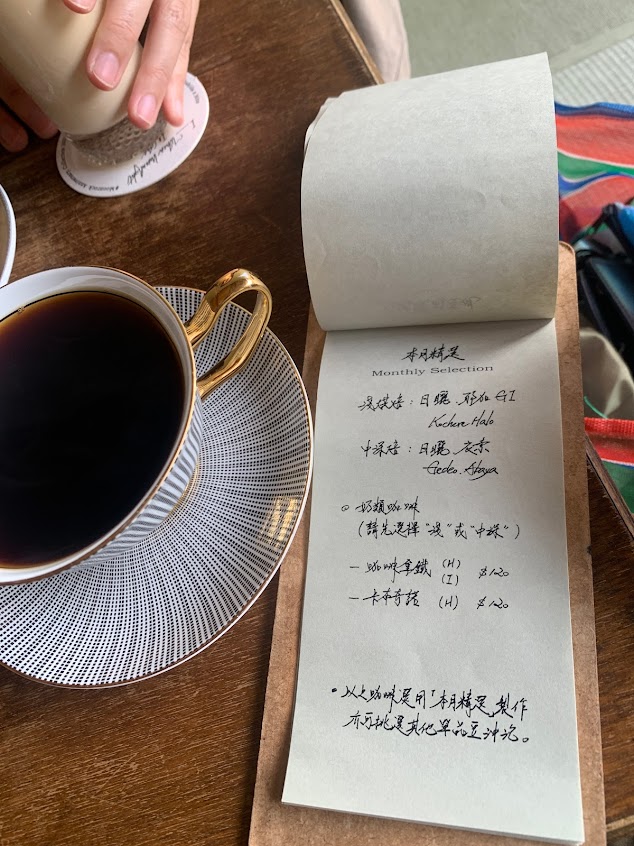 本月精選
Monthly Selection
淺烘焙：日曬 耶加 G1
Kochere Halo
中深焙：日曬 衣索
Gedeo. Abaya
○ 奶類咖啡
（請先選擇"淺"或"中深"）
－咖啡拿鐵 (H) $120
(I)
－卡布奇諾 (H) $120
○ 以上咖啡選用「本月精選」製作
亦可挑選其他單品豆沖泡。